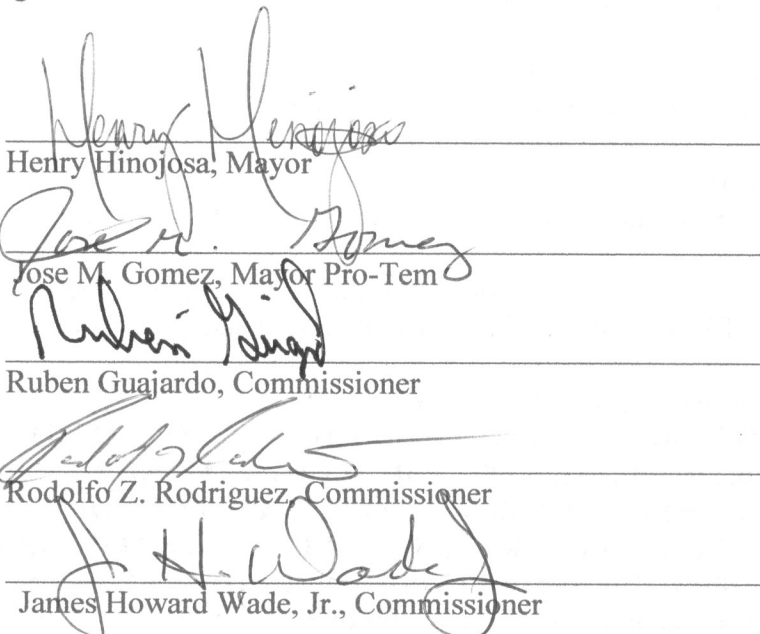 Henry Hinojosa
Henry Hinojosa, Mayor
Jose M. Gomez
Jose M. Gomez, Mayor Pro-Tem
Ruben
Ruben Guajardo, Commissioner
Rodolfo Z. Rodriguez, Commissioner
J. H. Wade Jr
James Howard Wade, Jr., Commissioner